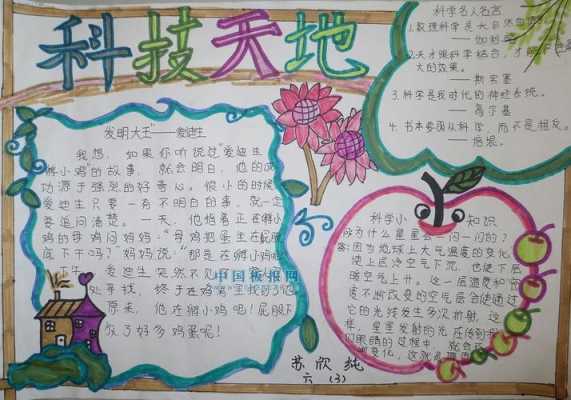 科技天地
发明大王"——爱迪生
我想，如果你听说过"爱迪生
孵小鸡"的故事，就会明白，他的成
功源于强烈的好奇心。很小的时候
爱迪生只要一有不明白的事，就一定
要追问清楚。一天，他指着正在孵小
鸡的母鸡问妈妈："母鸡把蛋坐在屁股
底下干吗？"妈妈说："那是在孵小鸡
爱迪生突然不见了
处寻找，终于在鸡窝里找到了他
原来，他在孵小鸡呢！屁股下
放了好多鸡蛋呢！
中国板报网
科学名人名言
1.数理科学是大自然
——伽利略
2.天才跟科学结合，才能
大的效果。
——斯宾塞
3.科学是我时代的神经系统。
——高尔基
4.书本要跟从科学，而不是相反。
——培根。
科学小知识
问：为什么星星会一闪一闪的？
答：因为地球上大气温度的变化
使上层冷空气下沉，也使下层
暖空气上升。这一层温度和密
度不断改变的空气层会使通过
它的光线发生多次折射，这
样，星星发射的光在传到我
们眼睛的过程中，就会
变化，这就是
苏欣纯
六（3）